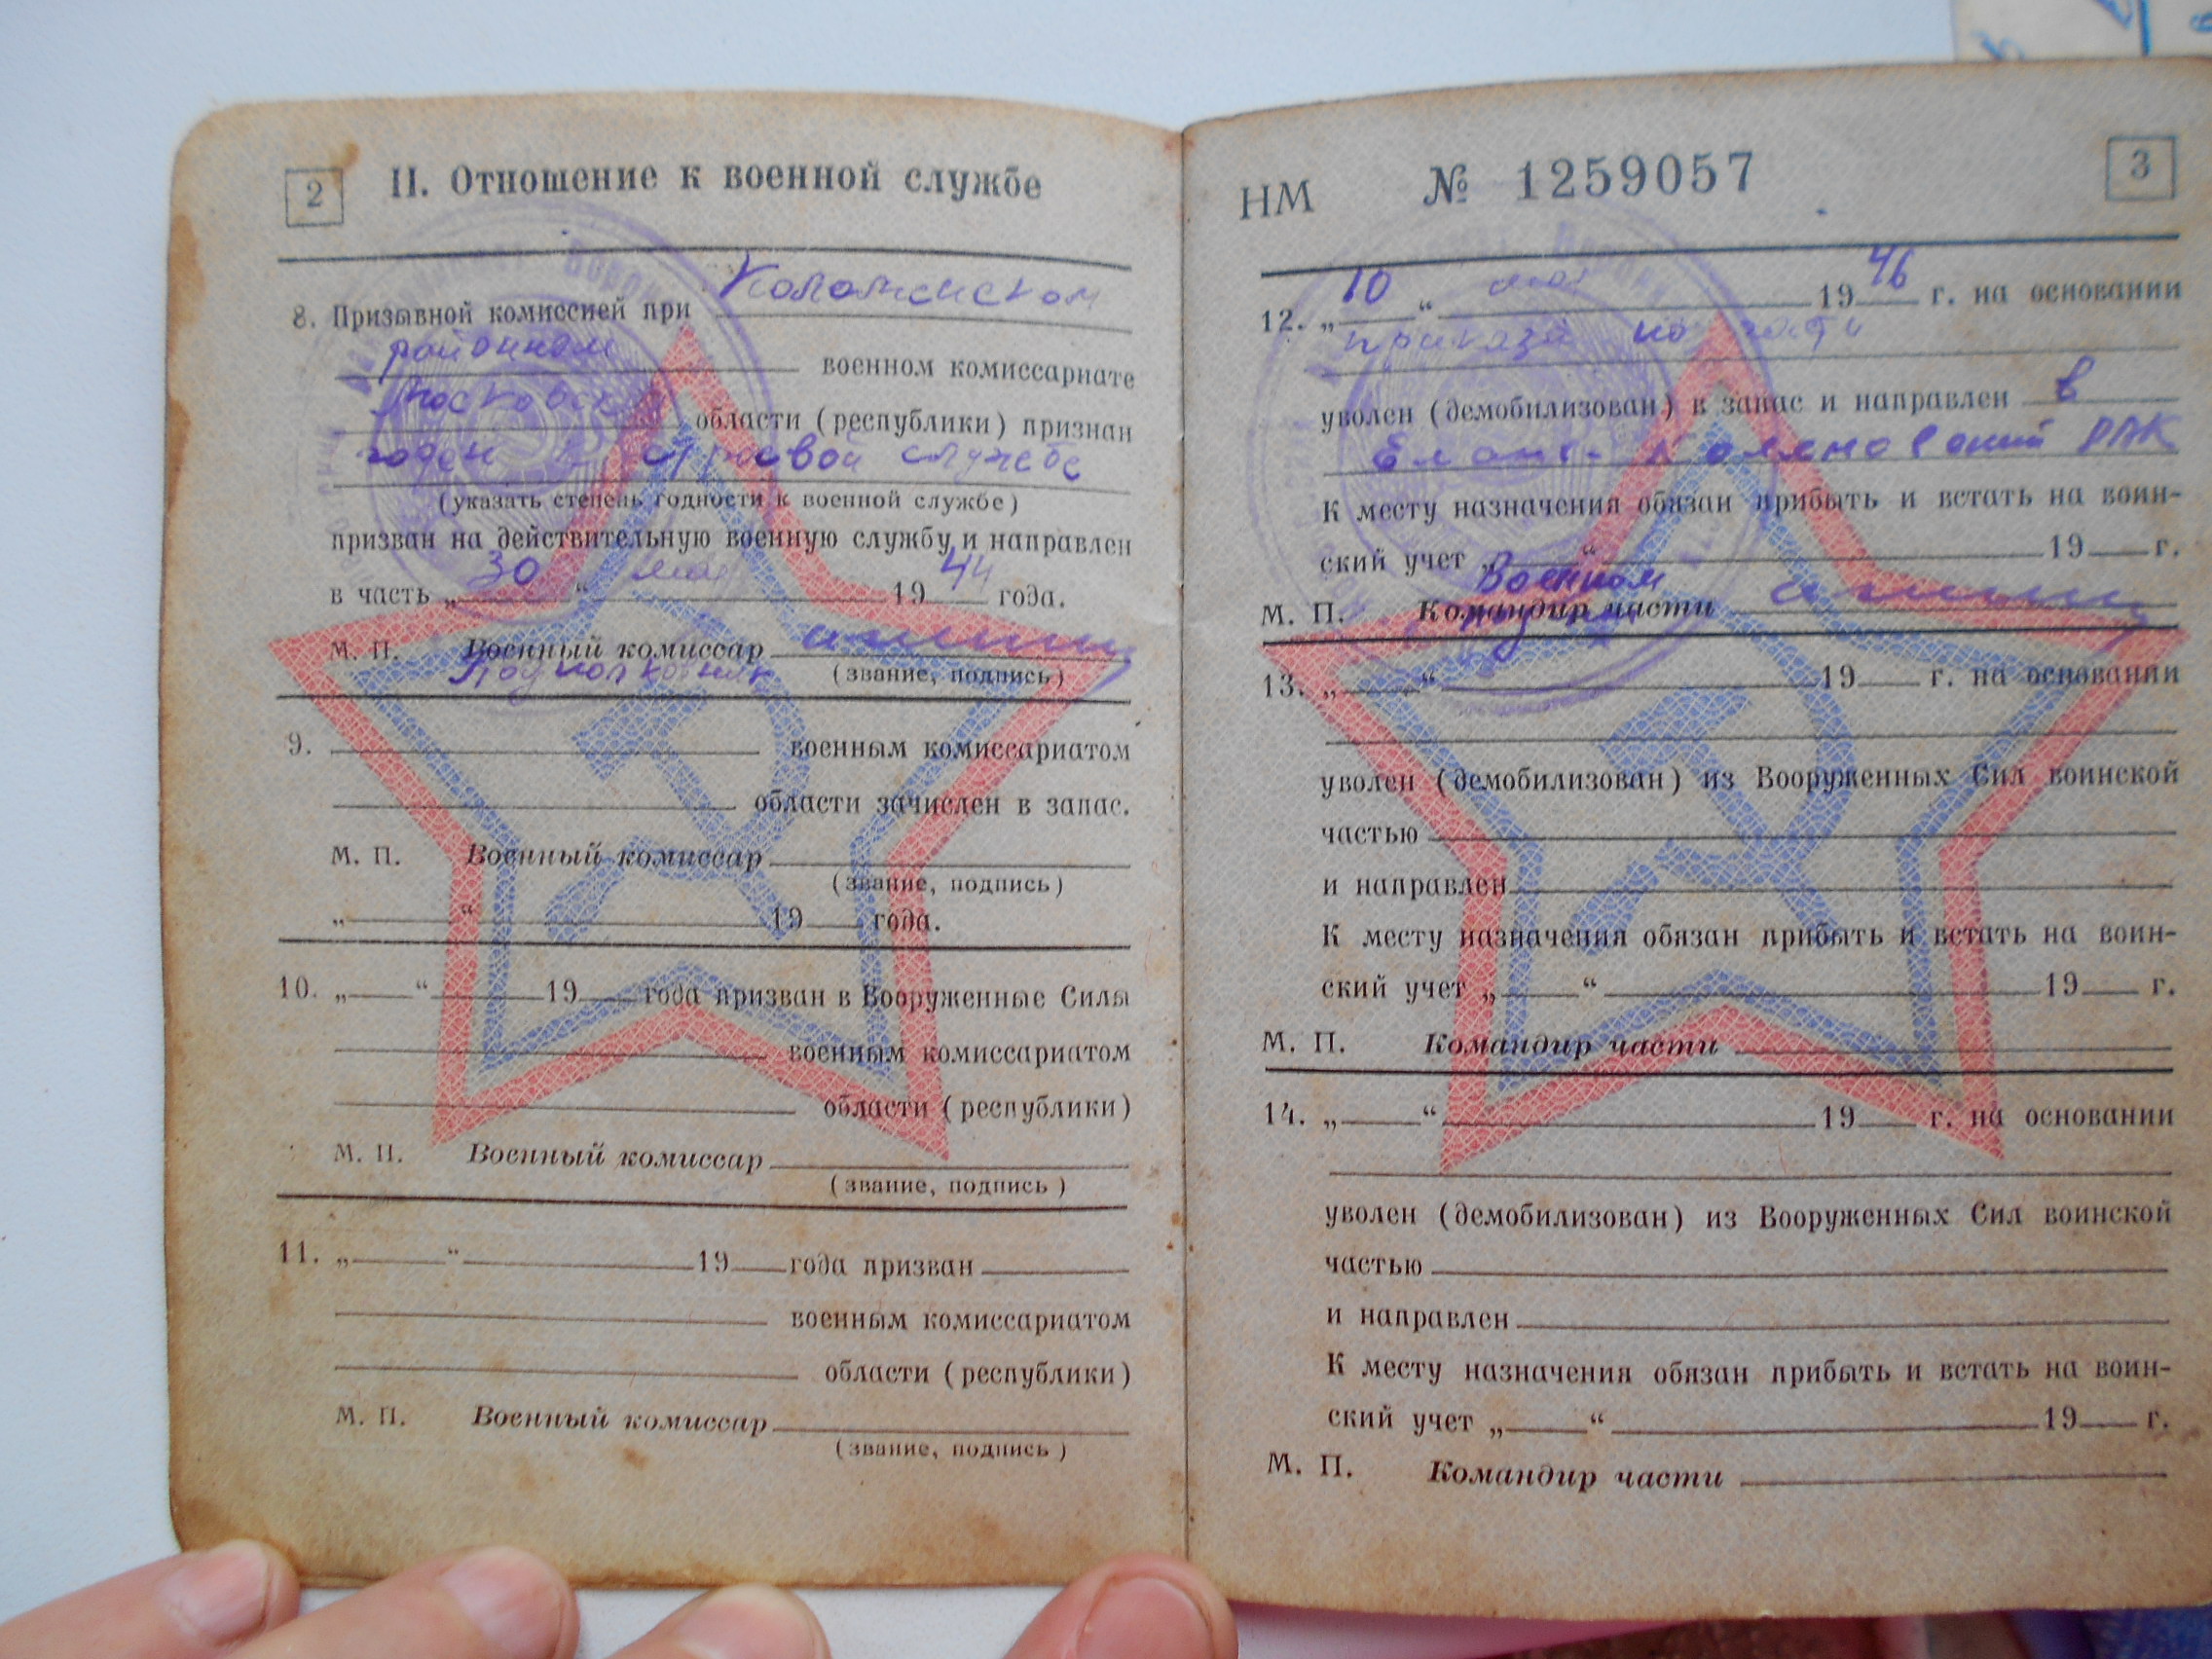 2 II. Отношение к военной службе
8. Призывной комиссией при Коломенском
районном военном комиссариате
Московск области (республики) признан
годен к строевой службе
(указать степень годности к военной службе)
призван на действительную военную службу и направлен
в часть „ 30 “ мая 19 44 года.
М. П. Военный комиссар
Подполковник (звание, подпись)
9. военным комиссариатом
области зачислен в запас.
М. П. Военный комиссар
(звание, подпись)
„ “ 19 года.
10. „ “ 19 года призван в Вооруженные Силы
военным комиссариатом
области (республики)
М. П. Военный комиссар
(звание, подпись)
11. „ “ 19 года призван
военным комиссариатом
области (республики)
М. П. Военный комиссар
(звание, подпись)
НМ № 1259057 3
12. „ 10 “ мая 19 46 г. на основании
приказа по
уволен (демобилизован) в запас и направлен в
Елань-Коленовский РВК
К месту назначения обязан прибыть и встать на воин-
ский учет „ “ 19 г.
Военком
М. П. Командир части
13. „ “ 19 г. на основании
уволен (демобилизован) из Вооруженных Сил воинской
частью
и направлен
К месту назначения обязан прибыть и встать на воин-
ский учет „ “ 19 г.
М. П. Командир части
14. „ “ 19 г. на основании
уволен (демобилизован) из Вооруженных Сил воинской
частью
и направлен
К месту назначения обязан прибыть и встать на воин-
ский учет „ “ 19 г.
М. П. Командир части